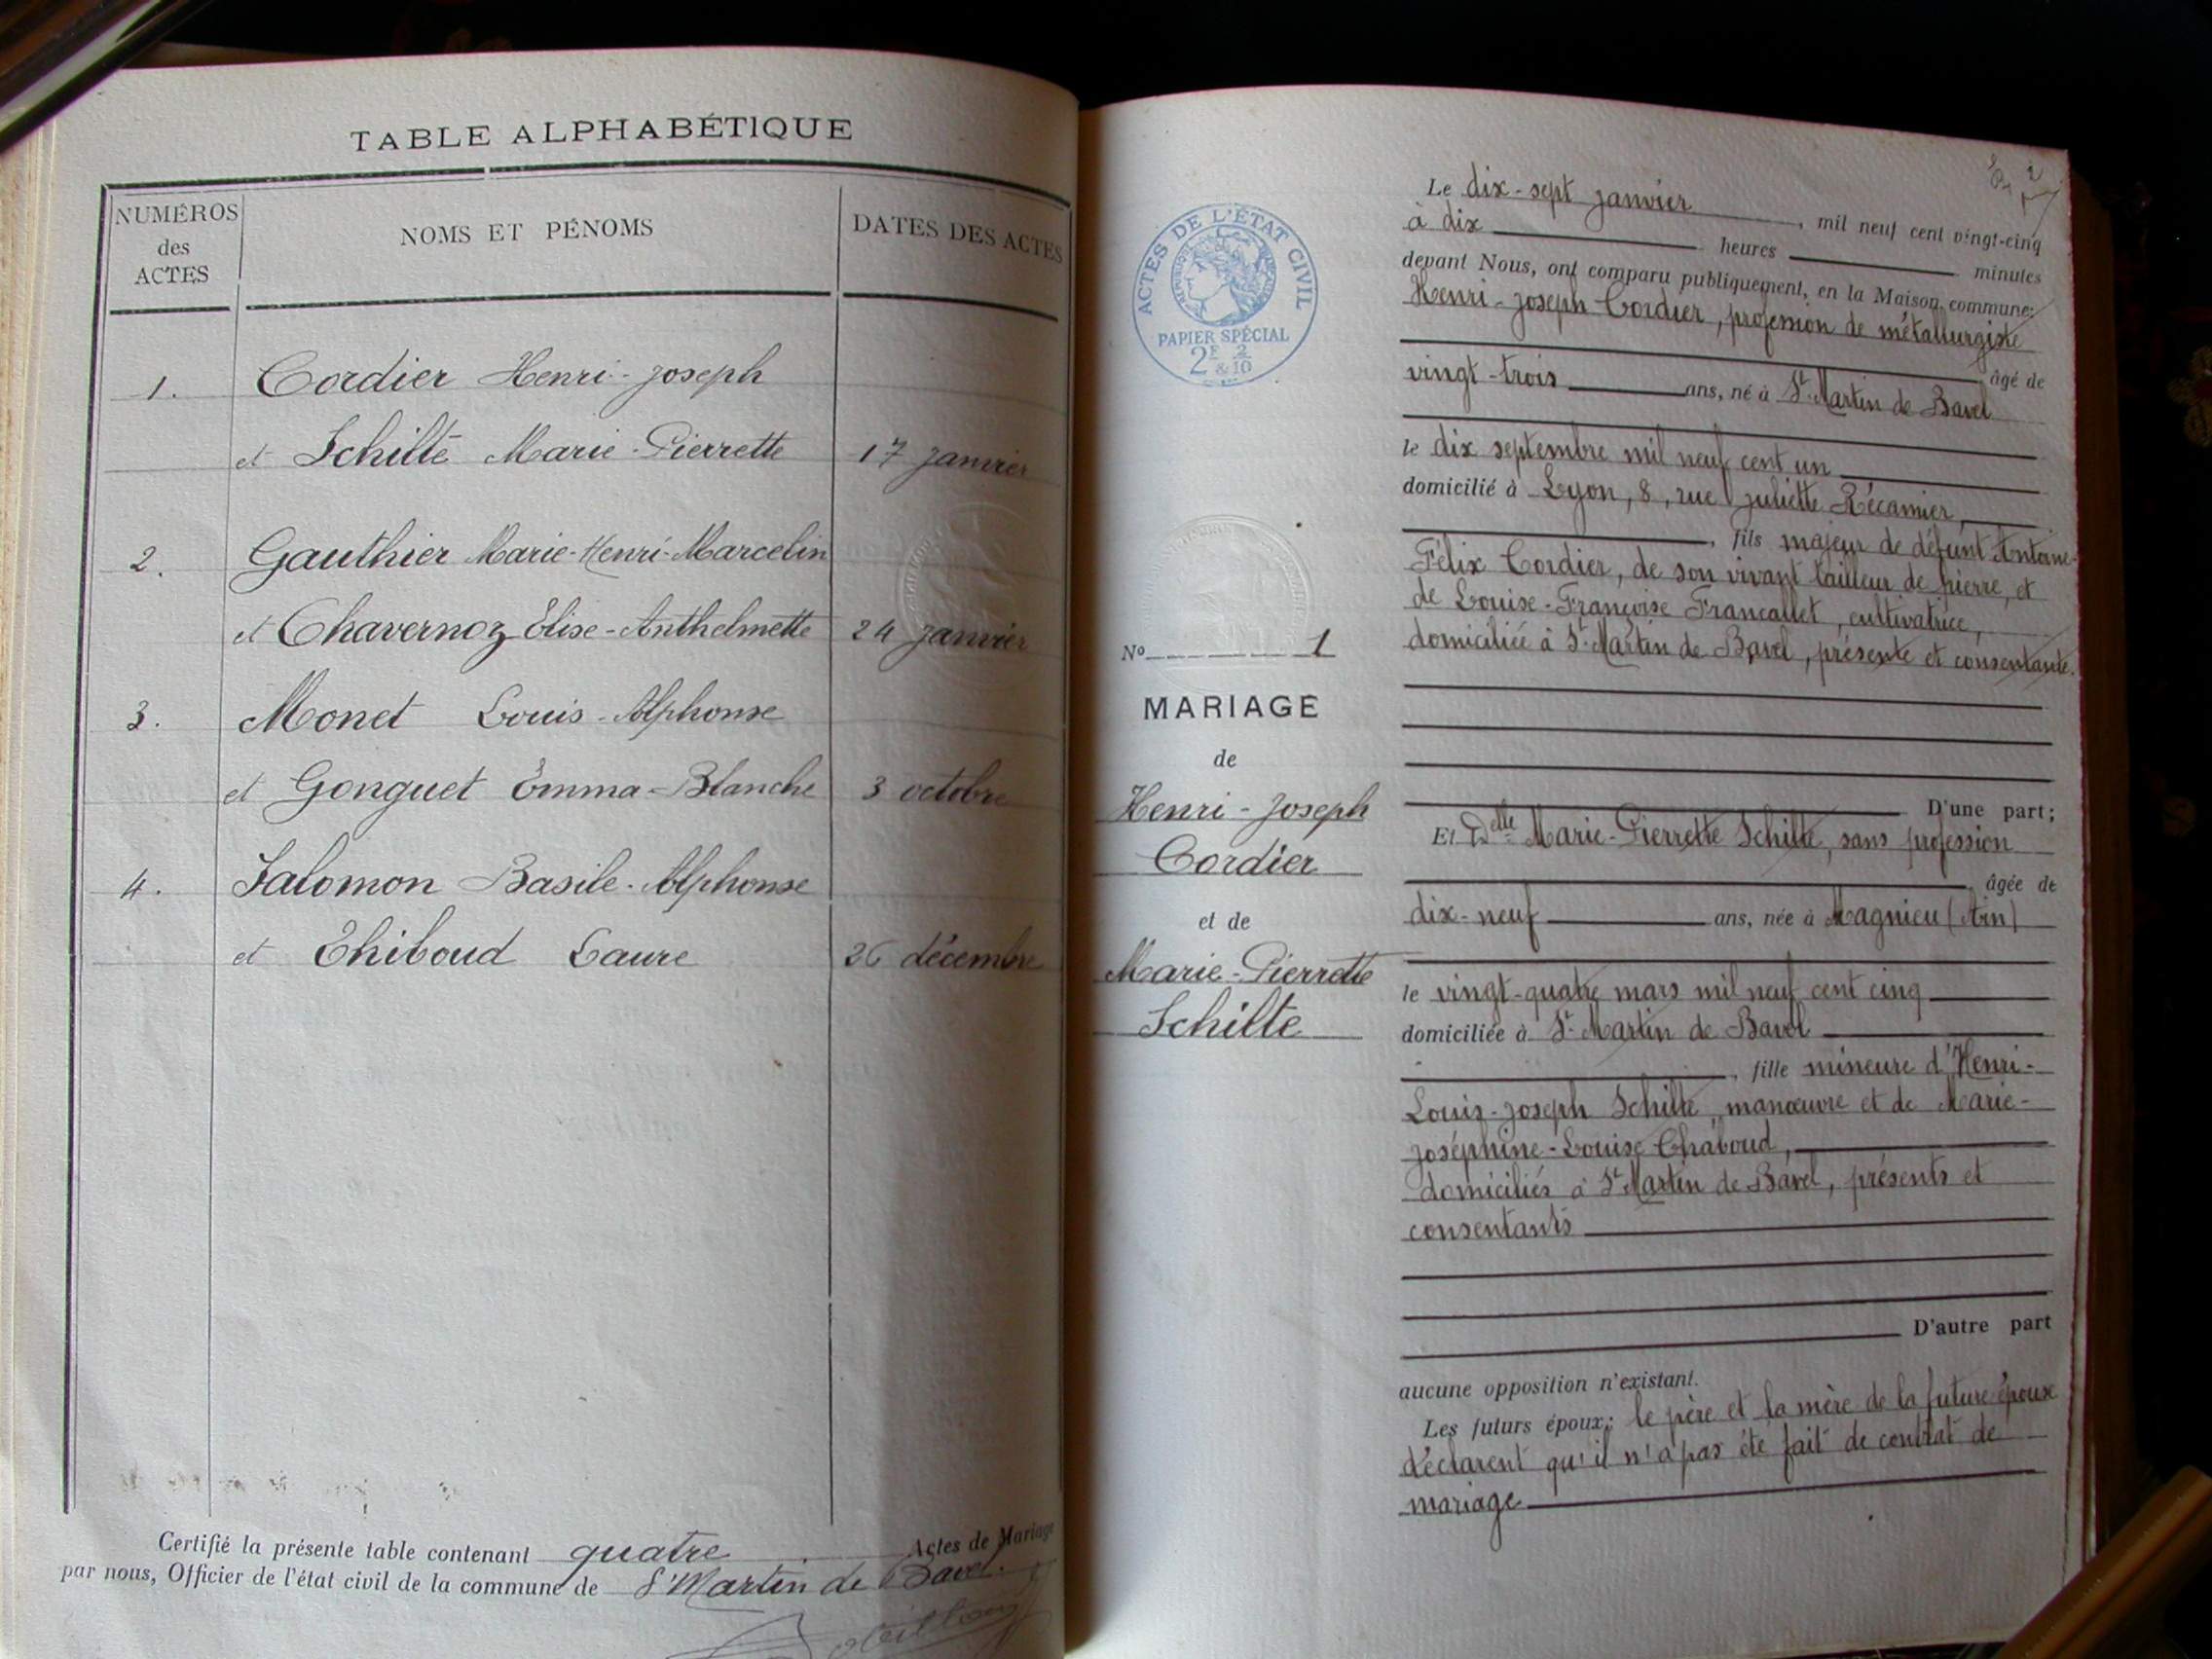 TABLE ALPHABÉTIQUE
NUMÉROS des ACTES
NOMS ET PÉNOMS
DATES DES ACTES
1. Cordier Henri-Joseph
et Schilte Marie-Pierrette 17 janvier
2. Gauthier Marie-Henri-Marcelin
et Chavernoz Élise-Anthelmette 24 janvier
3. Monet Louis-Alphonse
et Gonguet Emma-Blanche 3 octobre
4. Salomon Basile-Alphonse
et Thiboud Laure 26 décembre
Certifié la présente table contenant quatre Actes de Mariage
par nous, Officier de l'état civil de la commune de St Martin de Bavel.
ACTES DE L'ÉTAT CIVIL
PAPIER SPÉCIAL
2F & 2/10
No 1
MARIAGE
de
Henri-Joseph
Cordier
et de
Marie-Pierrette
Schilte
2
Le dix-sept janvier, mil neuf cent vingt-cinq
à dix heures minutes
devant Nous, ont comparu publiquement, en la Maison commune:
Henri-Joseph Cordier, profession de métallurgiste
âgé de
vingt-trois ans, né à St Martin de Bavel
le dix septembre mil neuf cent un
domicilié à Lyon, 8, rue Juliette Récamier,
, fils majeur de défunt Antoine-
Félix Cordier, de son vivant tailleur de pierre, et
de Louise-Françoise Francallet, cultivatrice,
domiciliée à St Martin de Bavel, présente et consentante.
D'une part;
Et Delle Marie-Pierrette Schilte, sans profession
âgée de
dix-neuf ans, née à Magnieu (Ain)
le vingt-quatre mars mil neuf cent cinq
domiciliée à St Martin de Bavel
, fille mineure d'Henri-
Louis-Joseph Schilte, manœuvre et de Marie-
Joséphine-Louise Chaboud,
domiciliés à St Martin de Bavel, présents et
consentants
D'autre part
aucune opposition n'existant.
Les futurs époux; le père et la mère de la future épouse
déclarent qu'il n'a pas été fait de contrat de
mariage